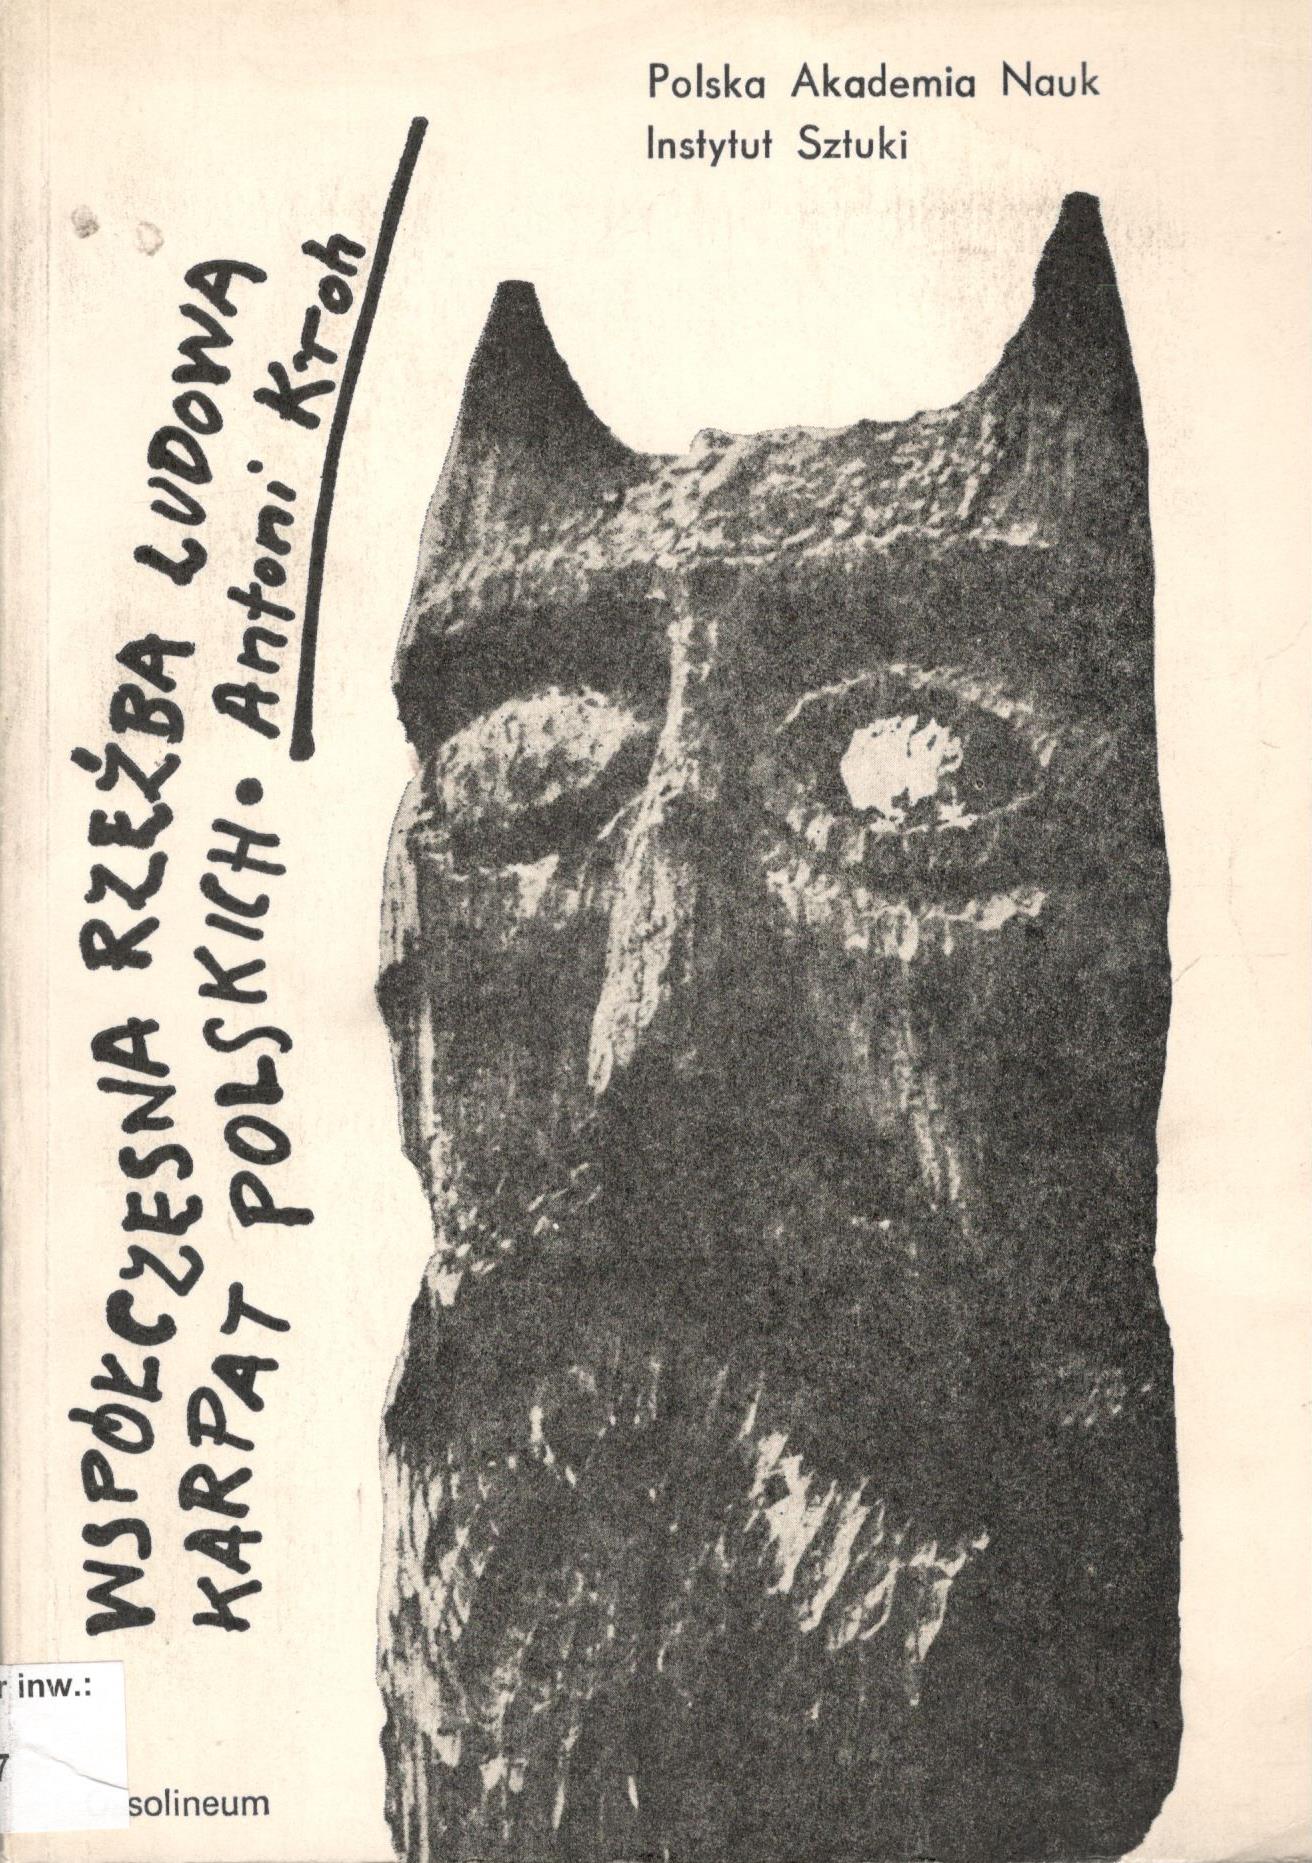 Polska Akademia Nauk
Instytut Sztuki
WSPÓŁCZESNA RZEŹBA LUDOWA
KARPAT POLSKICH • Antoni Kroh
inw.:
7
solineum